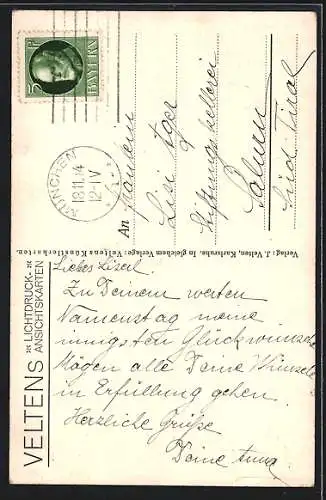 5 Pf
BAYERN
MÜNCHEN
18.11.14
12-1 V
An Fräulein
Lisi
Stiftungskellerei
Salurn
Süd Tirol
Verlag: J. Velten, Karlsruhe. In gleichem Verlage: Veltens Künstlerkarten.
VELTENS
LICHTDRUCK-
ANSICHTSKARTEN
Liebes Liserl.
Zu Deinem werten
Namenstag meine
innigsten Glückwünsche
Mögen alle Deine Wünsche
in Erfüllung gehen.
Herzliche Grüße
Deine Anna